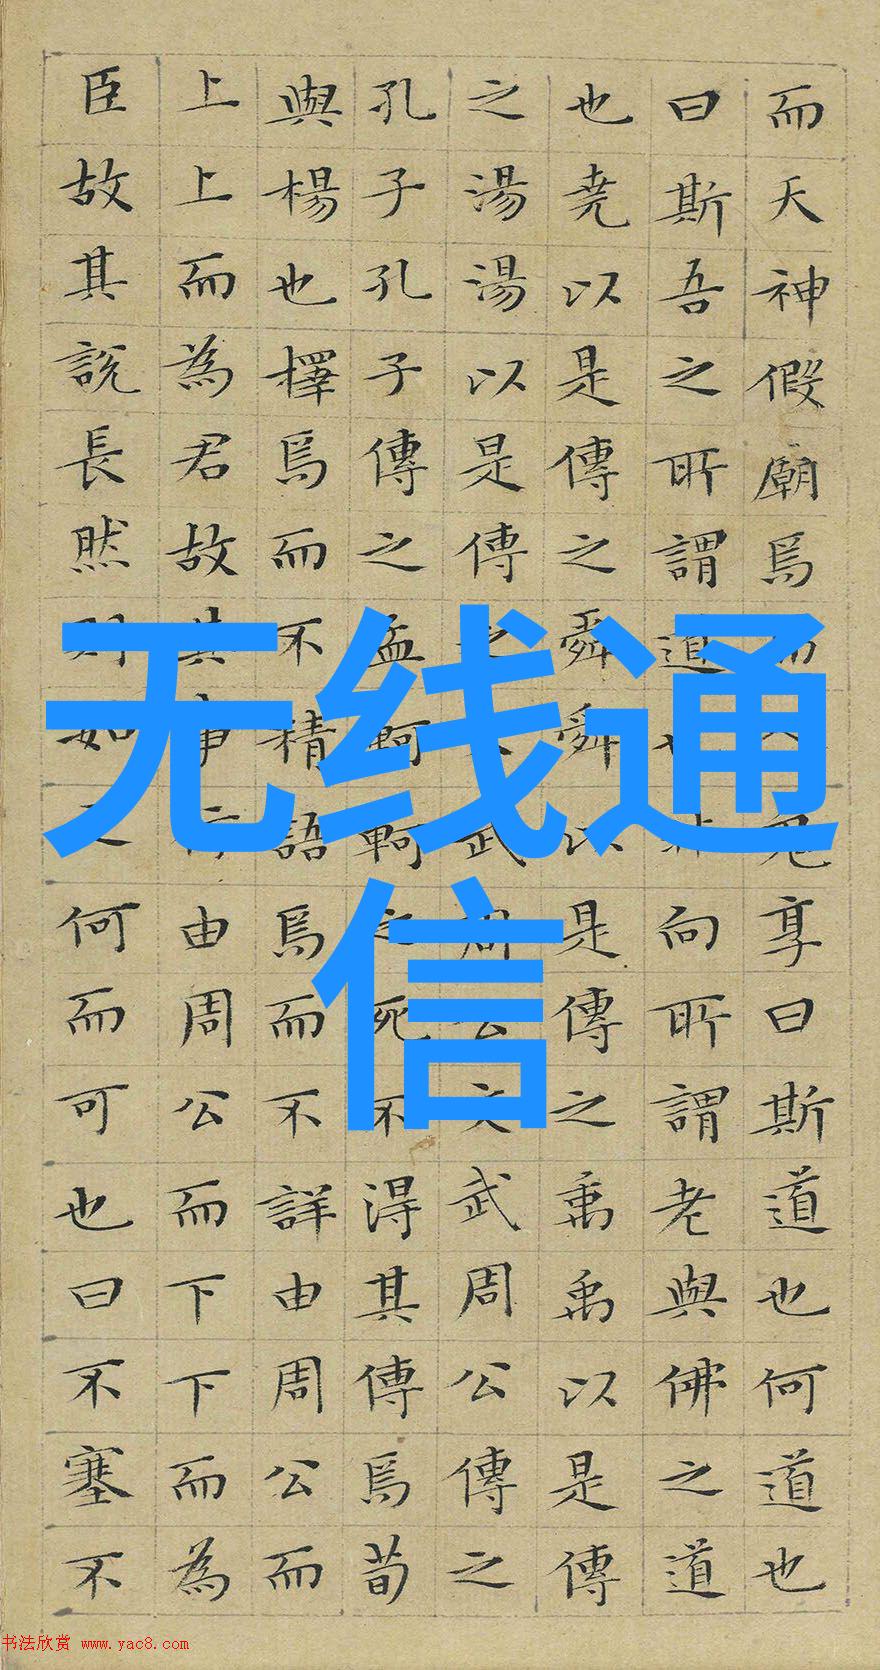 而天神假廟焉而人鬼享曰斯道也何道也
曰斯吾之所謂道也非向所謂老與佛之道
也堯以是傳之舜舜以是傳之禹禹以是傳
之湯湯以是傳之文武周公文武周公傳之
孔子孔子傳之孟軻軻之死不得其傳焉荀
與楊也擇焉而不精語焉而不詳由周公而
上上而為君故其事行由周公而下下而為
臣故其說長然則如之何而可也曰不塞不
无线通
信
书法欣赏 www.yac8.com